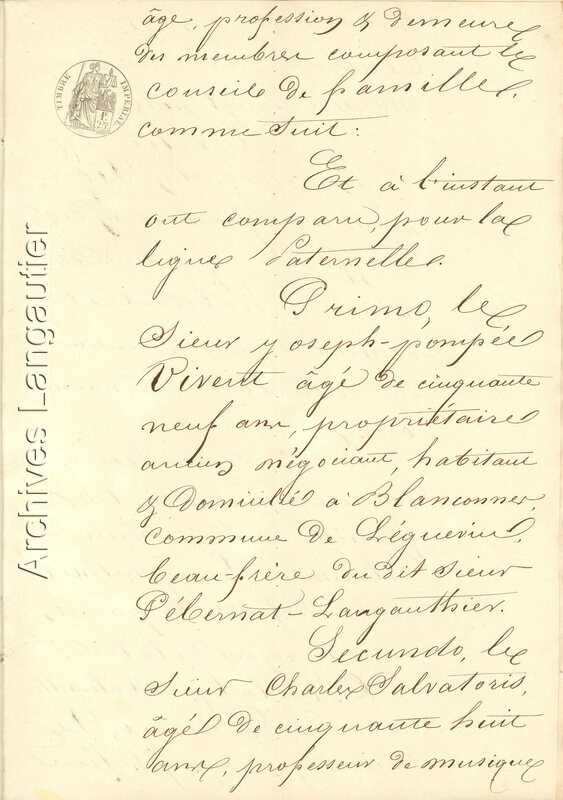 âge, profession & demeure
des membres composant le
conseil de famille,
comme suit:
TIMBRE IMPERIAL
1F
25c
Et à l'instant
ont comparu, pour la
ligne Paternelle.
Primo, le
Sieur Yoseph-pompée
Vivent âgé de cinquante
neuf ans, propriétaire
ancien négociant, habitant
& domicilié à Blanconner,
commune de Léguevin,
beau-frère du dit sieur
Pébernat-Langauthier.
Secundo, le
sieur Charles Salvatoris,
âgé de cinquante huit
ans, professeur de musique
Archives Langautier